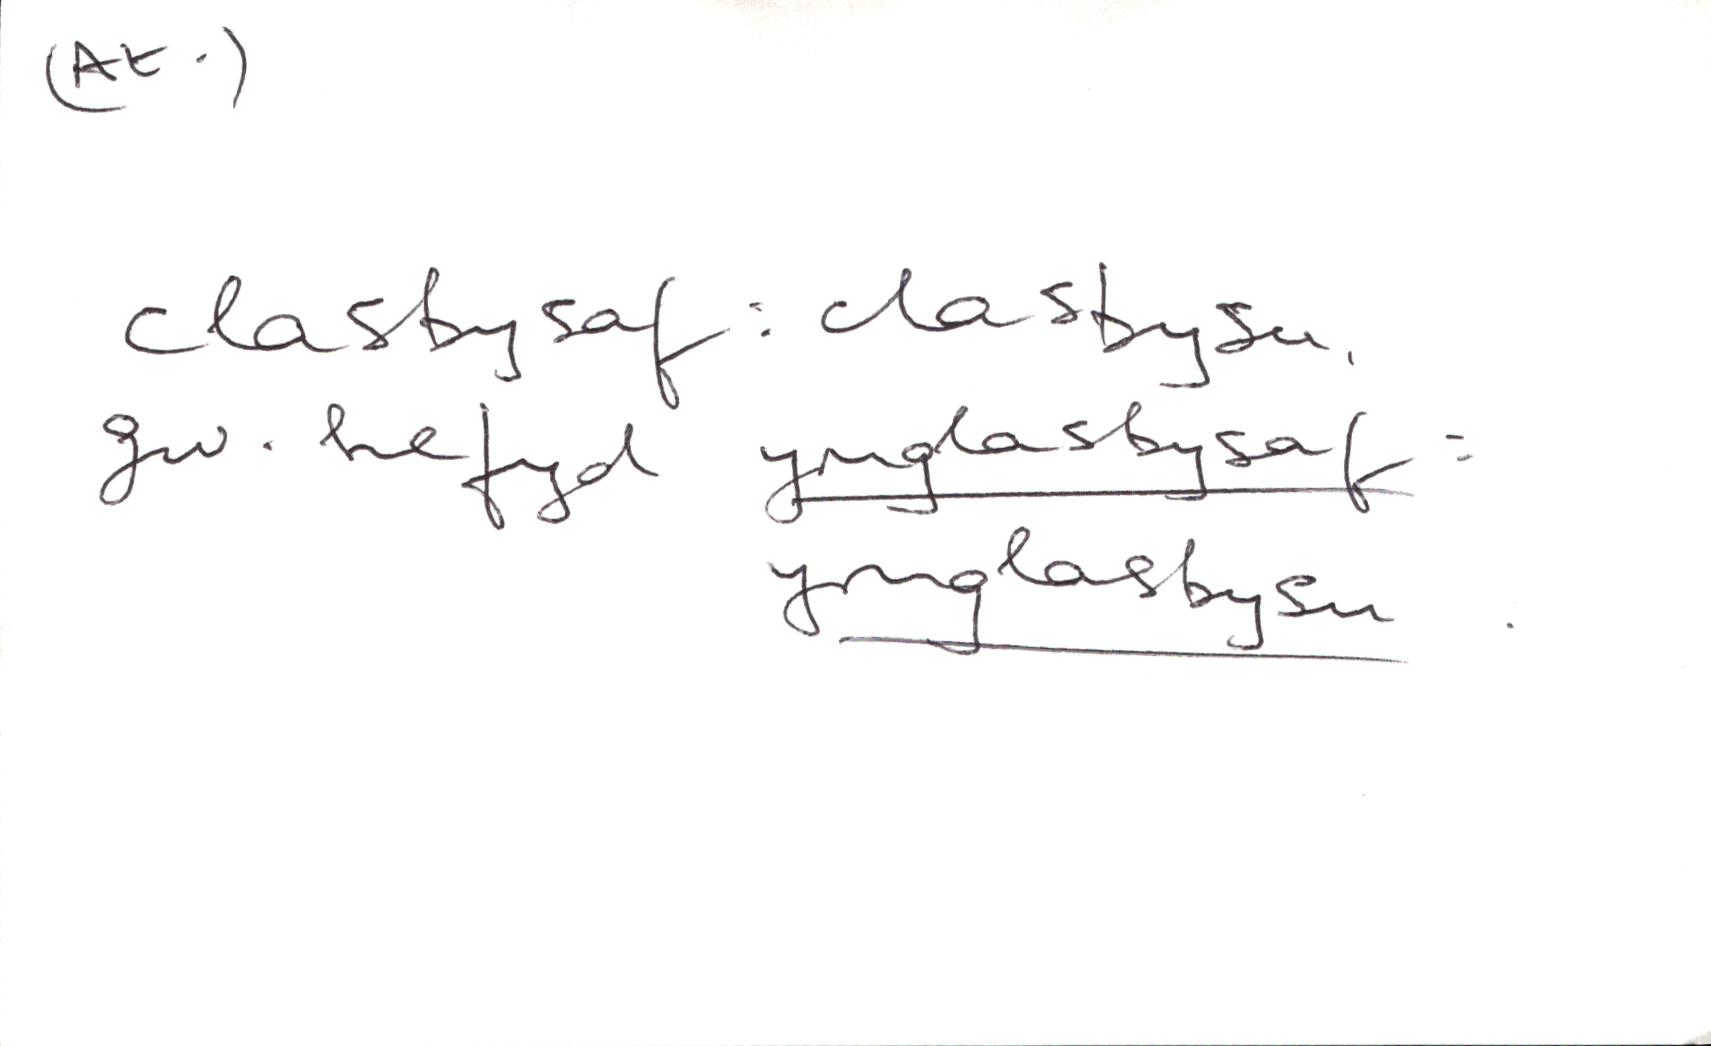 (At.)
clasbysaf: clasbysu,
gw. hefyd ynglasbysaf:
ynglasbysu.